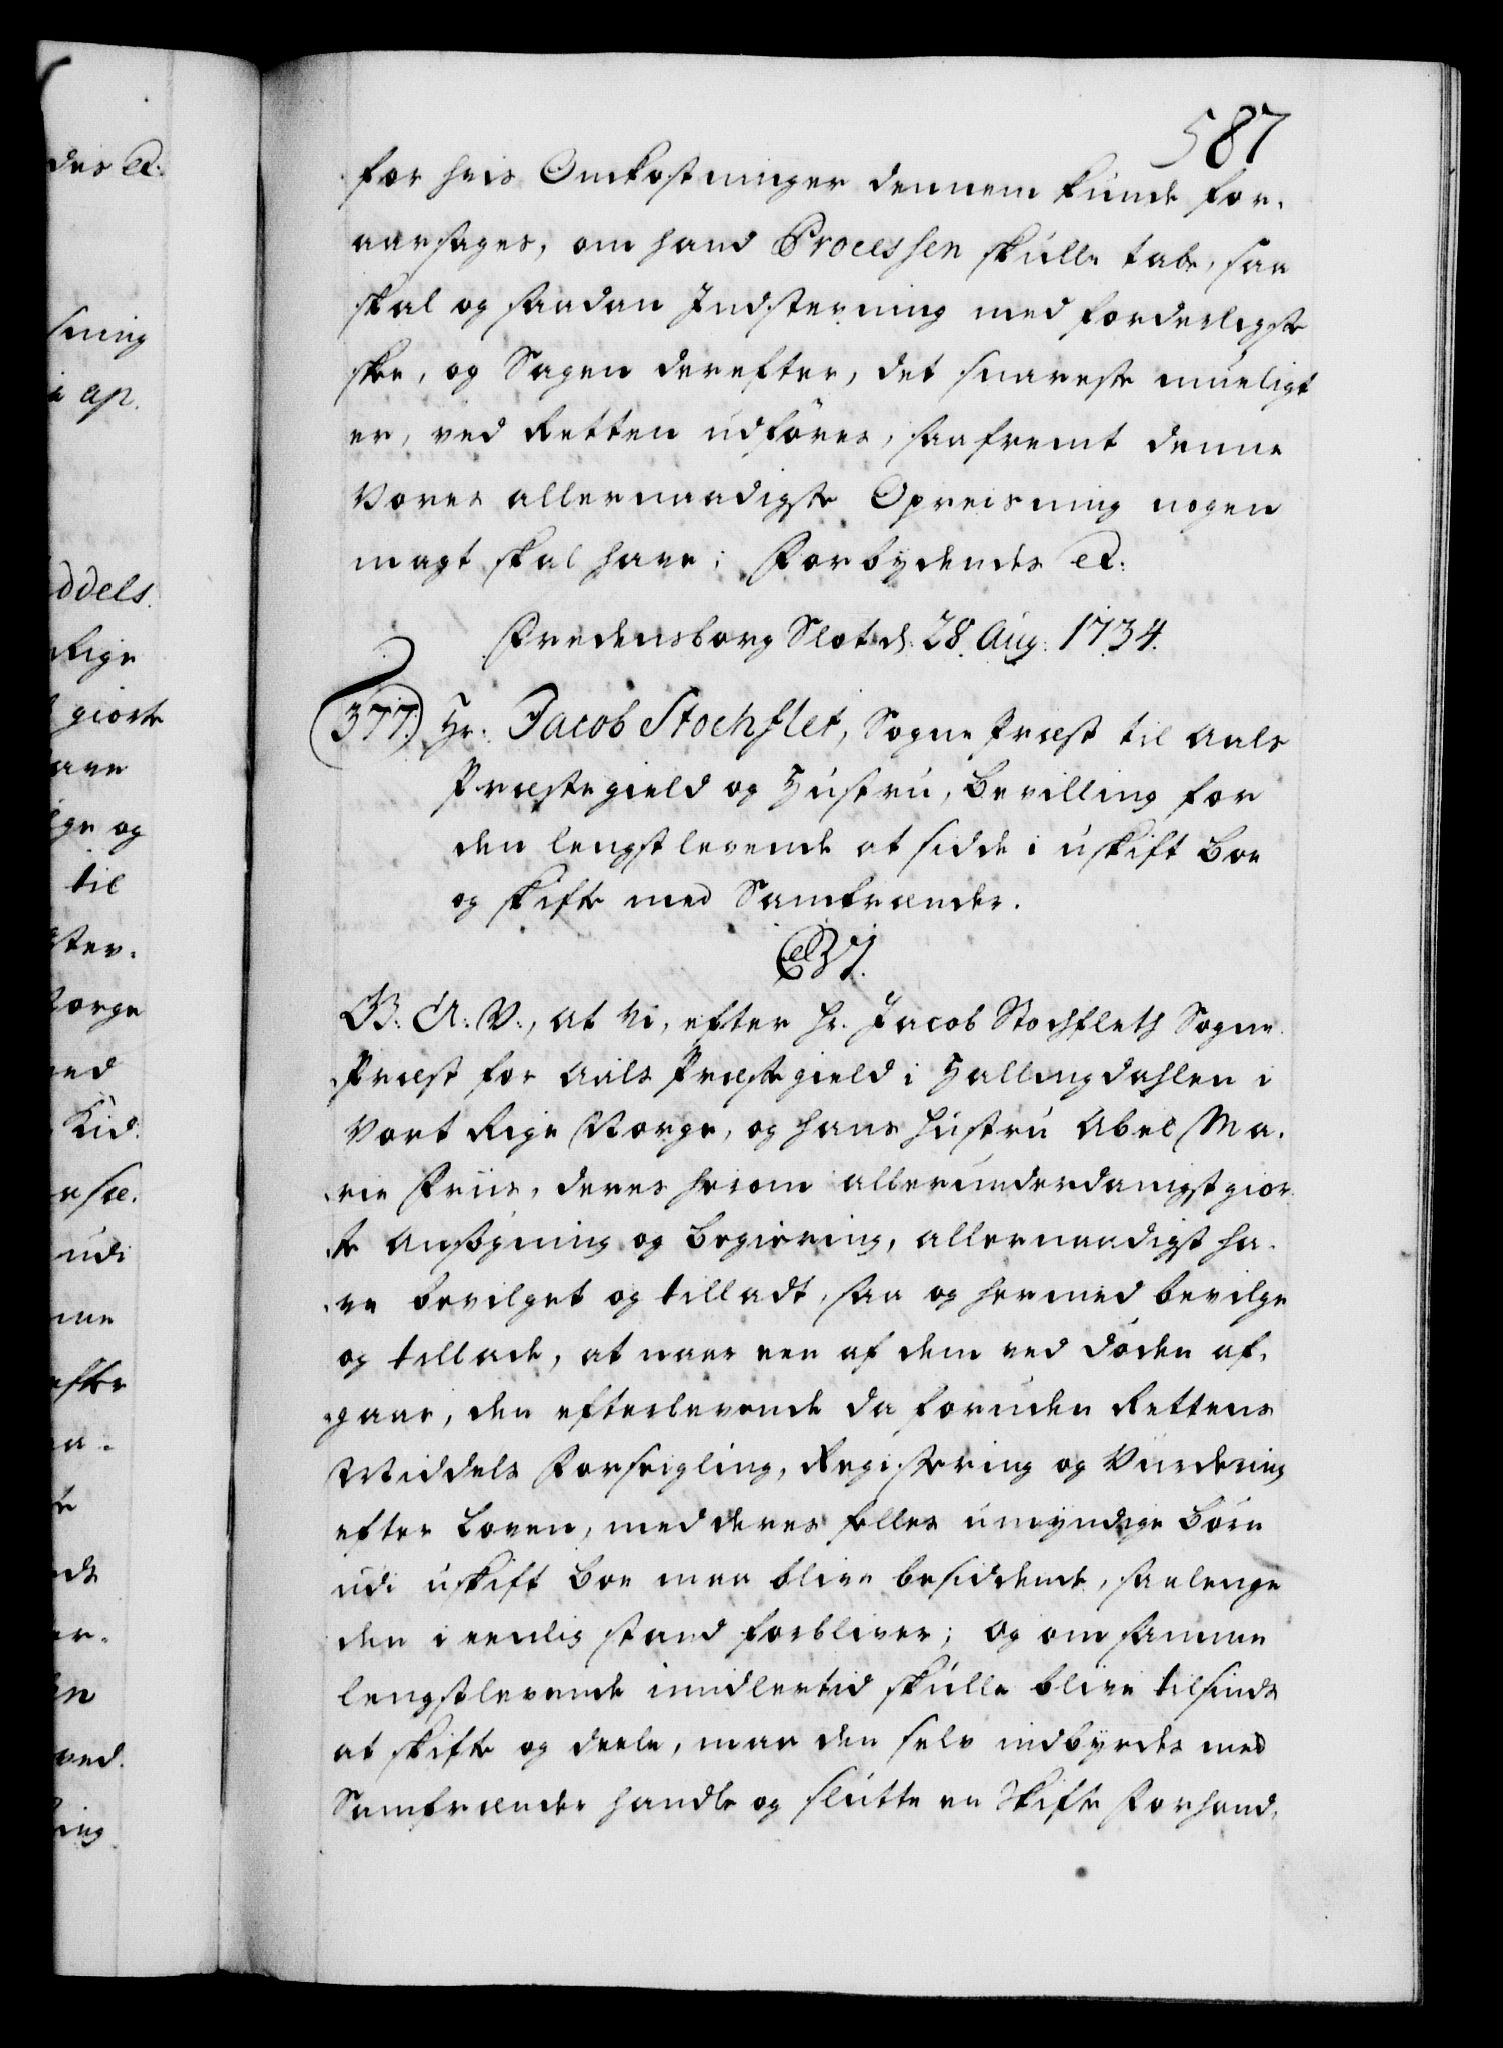 587
for hvis Omkostninger dennem kunde for-
aarsages, om hand Processen skulle tabe, saa
skal og saadan Indstevning med forderligste
skee, og Sagen derefter, det snareste mueligt
er, ved Retten udføres, saafremt denne
Vores allernaadigste Opreisning nogen
magt skal have; Forbydendes etc:
Fredensborg Slot d: 28. Aug: 1734.
377.) Hr: Jacob Stochflet, Sogne Præst til Aals
Præstegield og Hustru, bevilling for
den lengstlevende at sidde i uskift Boe
og skifte med Samfrænder.
C 6.
G: A: V:, at Vi, efter Hr. Jacob Stochfleth Sogne-
Præst for Aals Præstegield i Hallingdahlen i
Vort Rige Norge, og hans Hustru Abel Ma-
rie Friis, deres herom allerunderdanigst gior-
te Ansøgning og begiering, allernaadigst ha-
ve bevilget og tilladt, saa og hermed bevilge
og tillade, at naar een af dem ved døden af-
gaar, den efterlevende da foruden Rettens
Middels Forseigling, Registering og Vurdering
efter Loven, med deres felles umyndige Børn
udi uskift Boe maa blive besiddende, saalenge
den i eenlig stand forbliver; og om samme
lengstlevende imidlertid skulle blive tilsinds
at skifte og deele, maa den selv indbyrdes med
Samfrænder handle og slutte en Skifte Forhand-